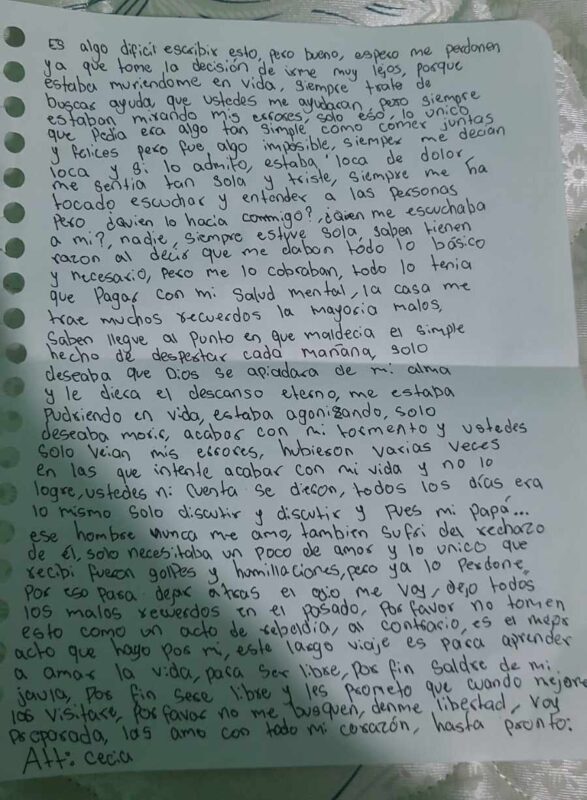 Es algo dificil escribir esto, pero bueno, espero me perdonen
ya que tome la decisión de irme muy lejos, porque
estaba muriendome en vida, siempre trate de
buscar ayuda, que ustedes me ayudaran, pero siempre
estaban mirando mis errores, solo eso, lo unico
que pedia era algo tan simple como comer juntas
y felices pero fue algo imposible, siemper me decian
loca y si lo admito, estaba loca de dolor,
me sentia tan sola y triste, siempre me ha
tocado escuchar y entender a las personas
pero ¿quien lo hacia conmigo?, ¿quien me escuchaba
a mi?, nadie, siempre estuve sola, saben tienen
razon al decir que me daban todo lo básico
y necesario, pero me lo cobraban, todo lo tenia
que pagar con mi salud mental, la casa me
trae muchos recuerdos la mayoria malos,
saben llegue al punto en que maldecia el simple
hecho de despertar cada mañana, solo
deseaba que Dios se apiadara de mi alma
y le diera el descanso eterno, me estaba
pudriendo en vida, estaba agonizando, solo
deseaba morir, acabar con mi tormento y ustedes
solo veian mis errores, hubieron varias veces
en las que intente acabar con mi vida y no lo
logre, ustedes ni cuenta se dieron, todos los días era
lo mismo solo discutir y discutir y pues mi papá...
ese hombre nunca me amo, tambien sufri del rechazo
de él, solo necesitaba un poco de amor y lo unico que
recibi fueron golpes y humillaciones, pero ya lo perdone,
por eso para dejar atras el odio me voy, dejo todos
los malos recuerdos en el pasado, por favor no tomen
esto como un acto de rebeldia, al contrario, es el mejor
acto que hago por mi, este largo viaje es para aprender
a amar la vida, para ser libre, por fin saldre de mi
jaula, por fin sere libre y les prometo que cuando mejore
las visitare, por favor no me busquen, denme libertad, voy
preparada, las amo con todo mi corazón, hasta pronto.
Att: cecia